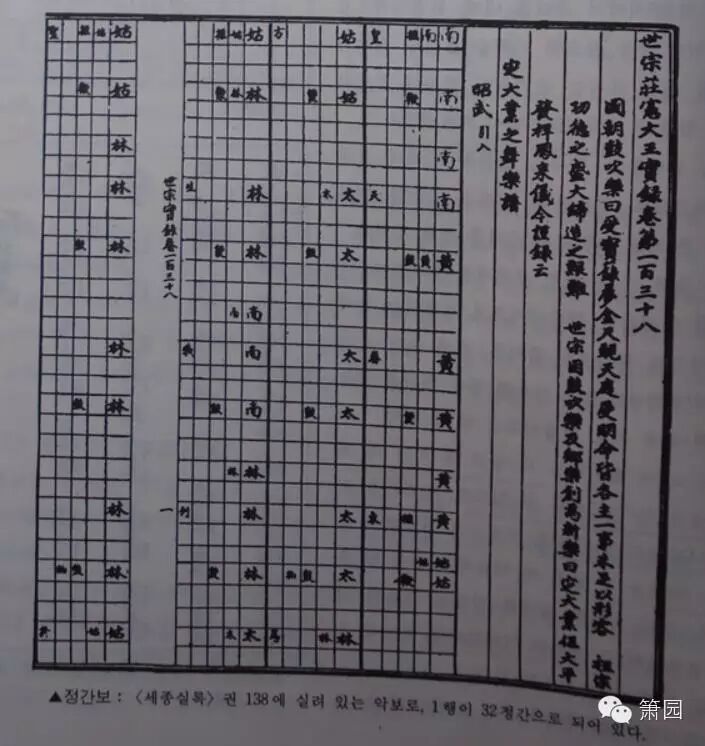 世宗莊憲大王實錄卷第一百三十八
國朝鼓吹樂曰受寶籙夢金尺覲天庭受明命皆各主一事未足以形容 祖宗
功德之盛大締造之艱難 世宗因鼓吹樂及鄕樂創爲新樂曰定大業保大平
發祥鳳來儀今謹錄云
定大業之舞樂譜
昭武引入
南南南南黃黃黃黃黃姑姑
南黃姑
皇天眷東
姑姑太太太太太太林
太林
方
姑林林林南南南林林林太
姑林南林太
生我列
世宗實錄卷一百三十八 一
姑姑林林林林林林林姑
姑姑
聖
▲정간보 : 〈세종실록〉 권 138에 실려 있는 악보로, 1행이 32정간으로 되어 있다.
箫园